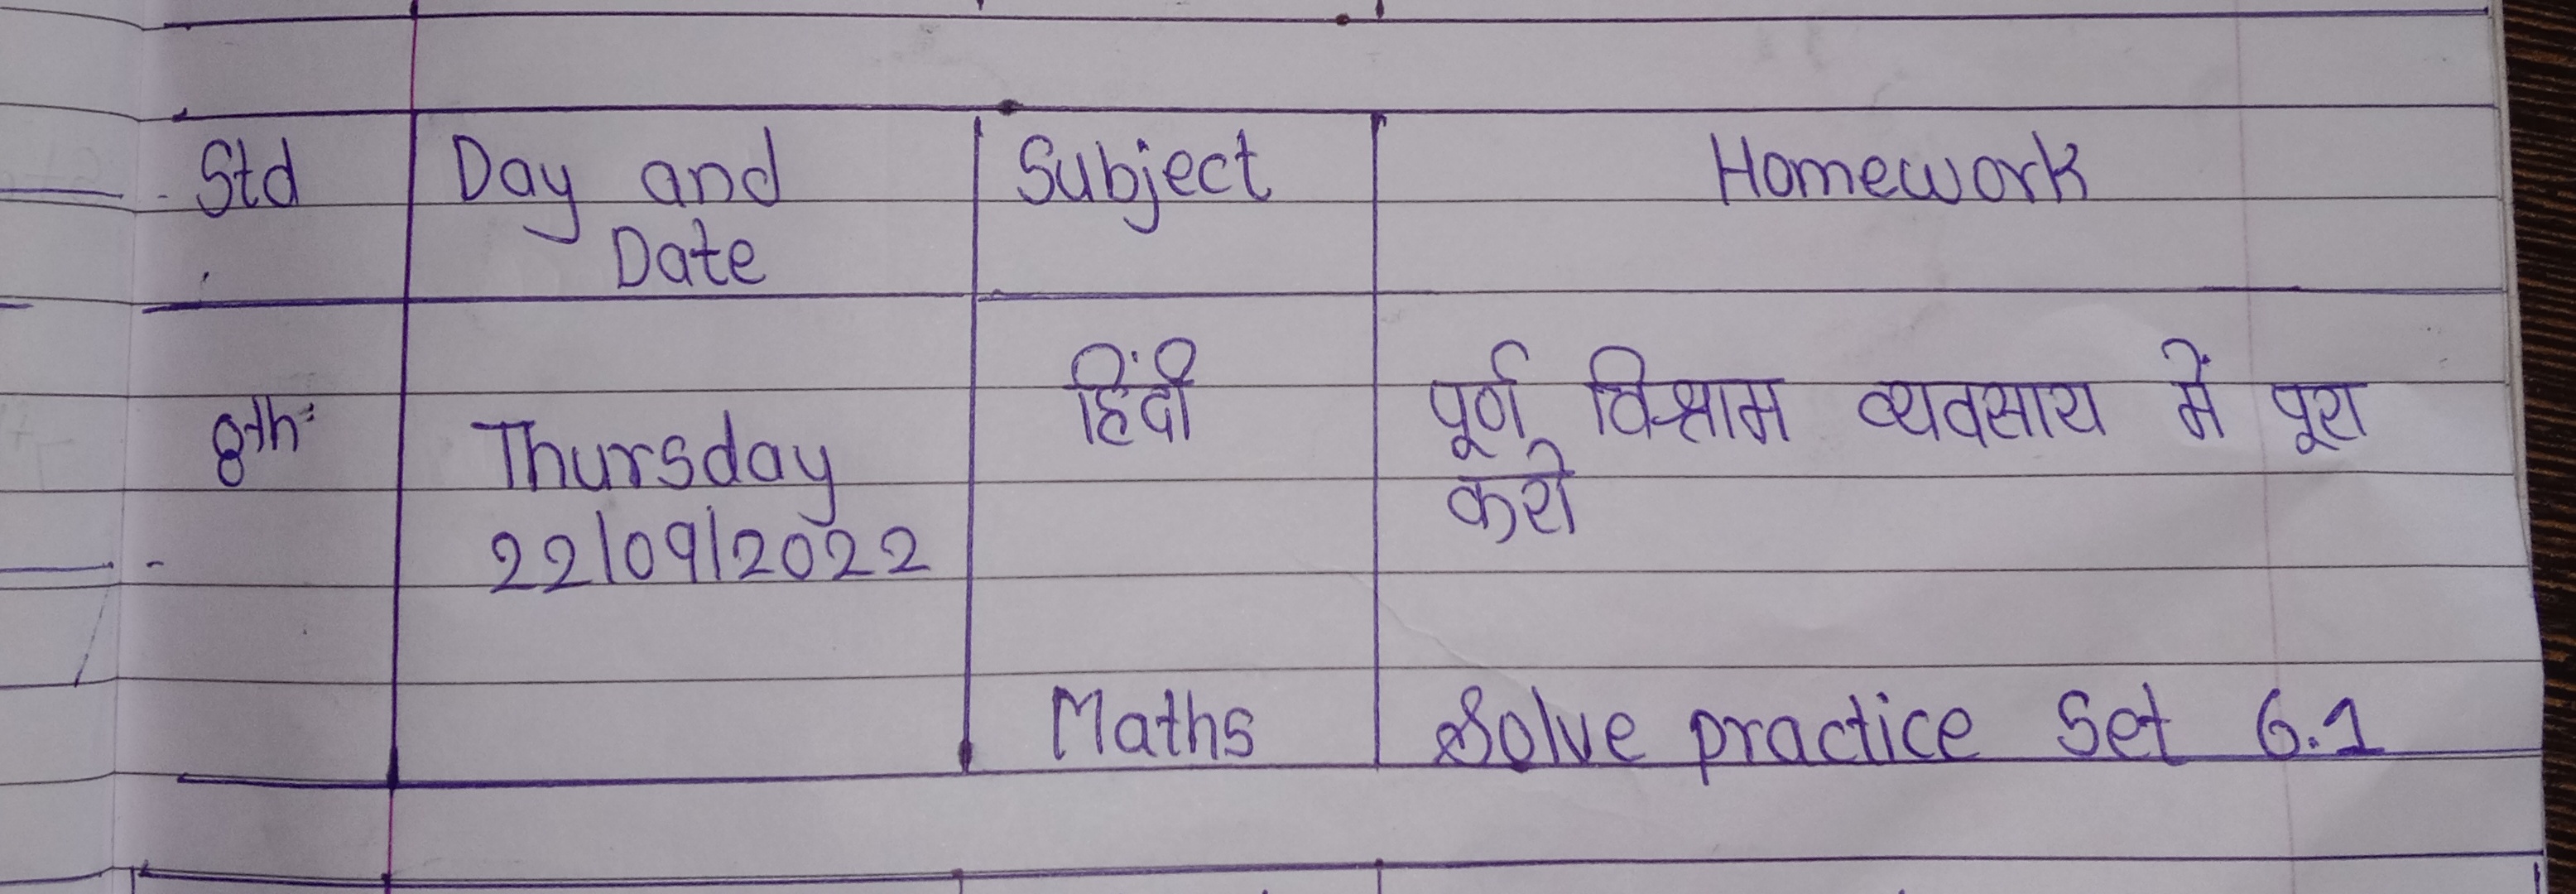 Std Day and Subject Homework
Date
हिंदी पूर्ण विश्राम व्यवसाय में पूरा
8th Thursday करो
22/09/2022
Maths Solve practice Set 6.1